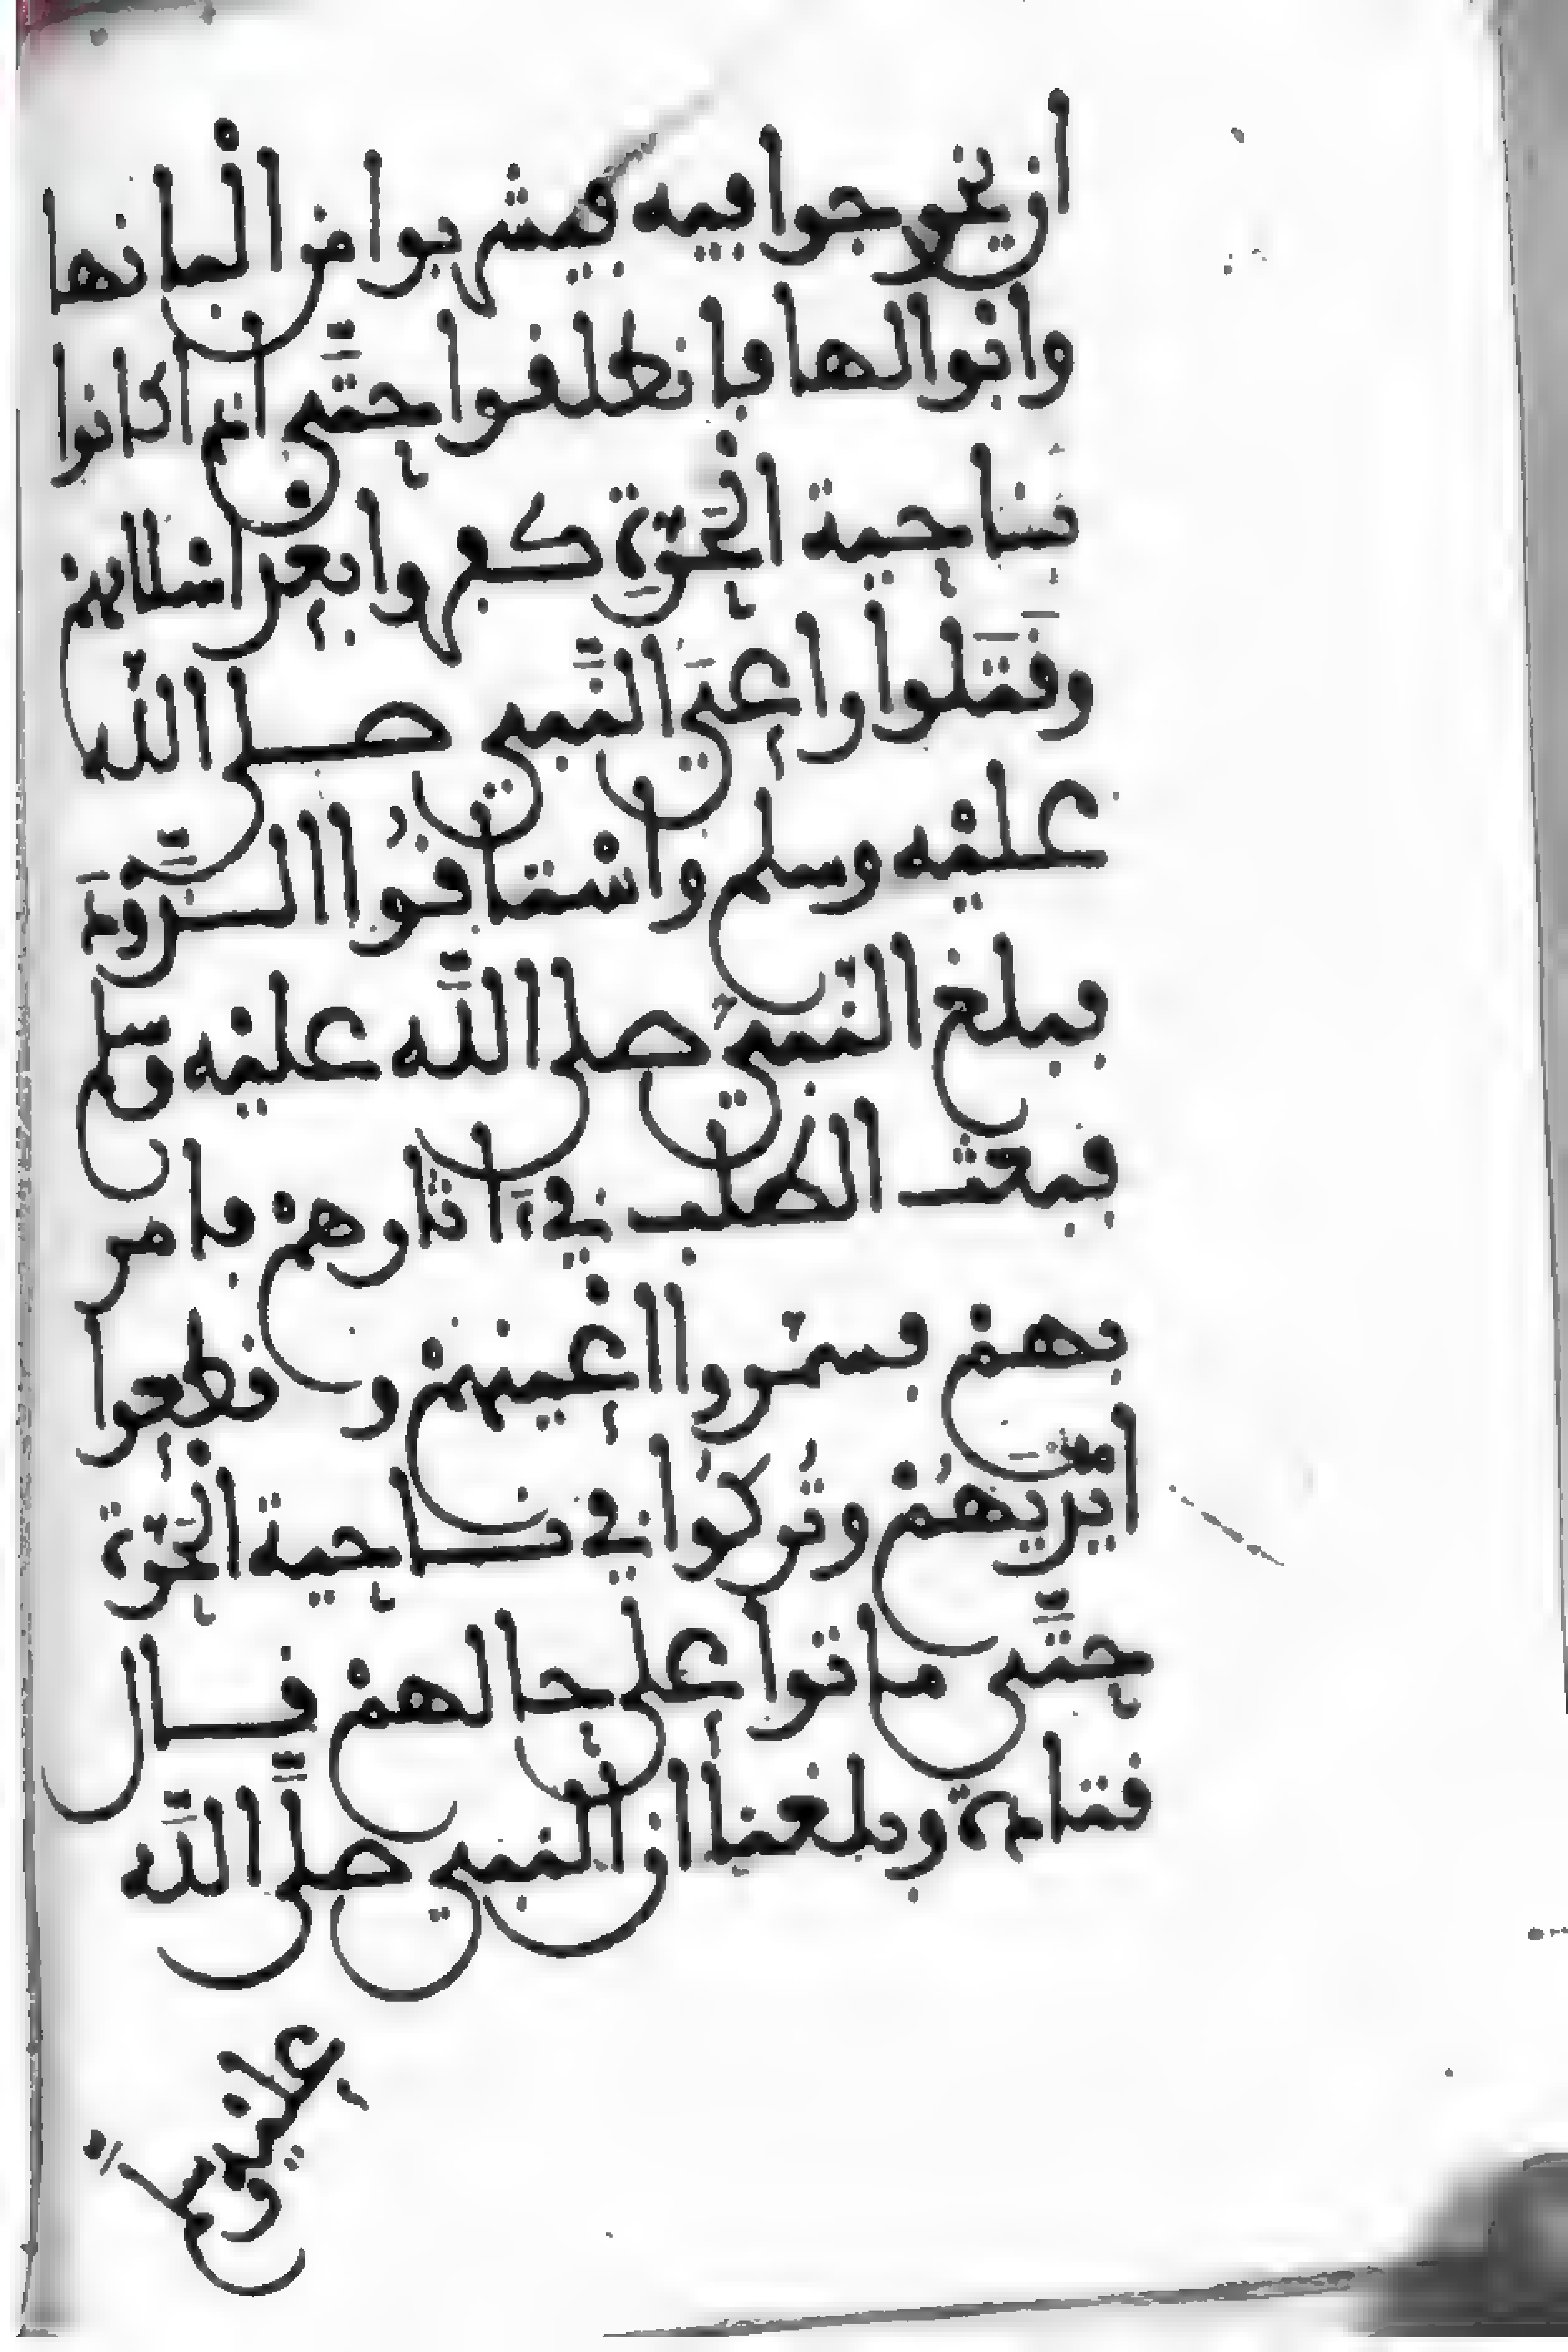 أن يخرجوا فيه فيشربوا من ألبانها
وأبوالها فانطلقوا حتى إذا كانوا
بناحية الحرة كفروا بعد إسلامهم
وقتلوا راعي النبي صلى الله
عليه وسلم واستاقوا الذود
فبلغ النبي صلى الله عليه وسلم
فبعث الطلب في ءاثارهم فأمر
بهم فسمروا أعينهم وقطعوا
أيديهم وتركوا في ناحية الحرة
حتى ماتوا على حالهم قال
قتادة وبلغنا أن النبي صلى الله
عليه وسلم